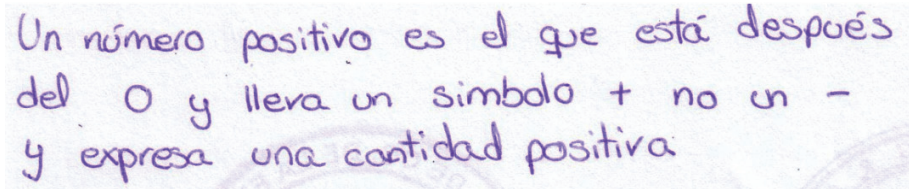 Un número positivo es el que está después
del 0 y lleva un simbolo + no un -
y expresa una cantidad positiva